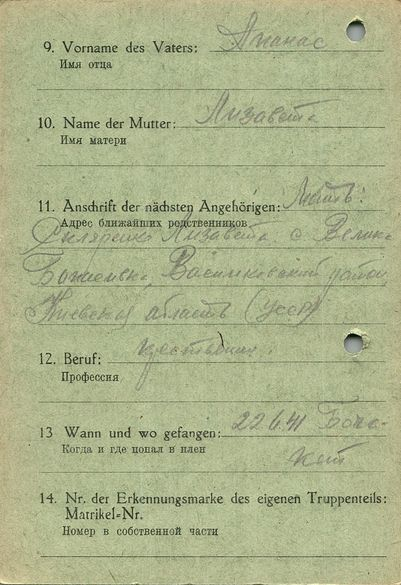 9. Vorname des Vaters: Апанас
Имя отца
10. Name der Mutter: Лизавета
Имя матери
11. Anschrift der nächsten Angehörigen: Мать:
Адрес ближайших родственников
Скляренко Лизавета с Велика
Васильковский район,
Киевская область (УССР)
12. Beruf:
Профессия
13 Wann und wo gefangen: 22.6.41
Когда и где попал в плен
14. Nr. der Erkennungsmarke des eigenen Truppenteils:
Matrikel=Nr.
Номер в собственной части